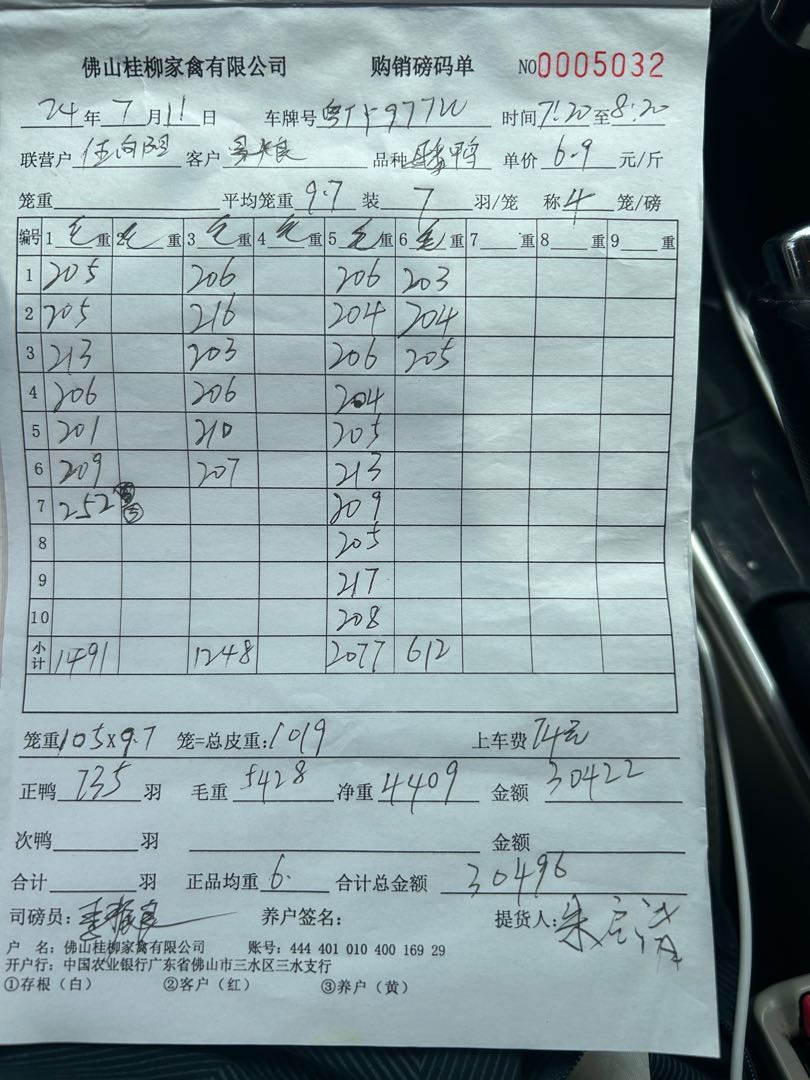 佛山桂柳家禽有限公司 购销磅码单 NO0005032
24年7月11日 车牌号 977W 时间7:20至8:20
联营户 客户 良 品种 鸭 单价6.9元/斤
笼重 平均笼重9.7装7羽/笼 称4笼/磅
编号 1毛重 2毛重 3毛重 4毛重 5毛重 6毛重 7重 8重 9重
1 205 206 206 203
2 205 216 204 204
3 213 203 206 205
4 206 206 204
5 201 210 205
6 209 207 213
7 252 209
8 205
9 217
10 208
小计 1491 1248 2077 612
笼重105X9.7笼=总皮重:1019 上车费74元
正鸭735羽 毛重5428净重4409金额30422
次鸭羽 金额
合计羽 正品均重6.合计总金额30496
司磅员: 养户签名: 提货人:朱
户 名:佛山桂柳家禽有限公司 账号:444 401 010 400 169 29
开户行:中国农业银行广东省佛山市三水区三水支行
①存根(白) ②客户(红) ③养户(黄)